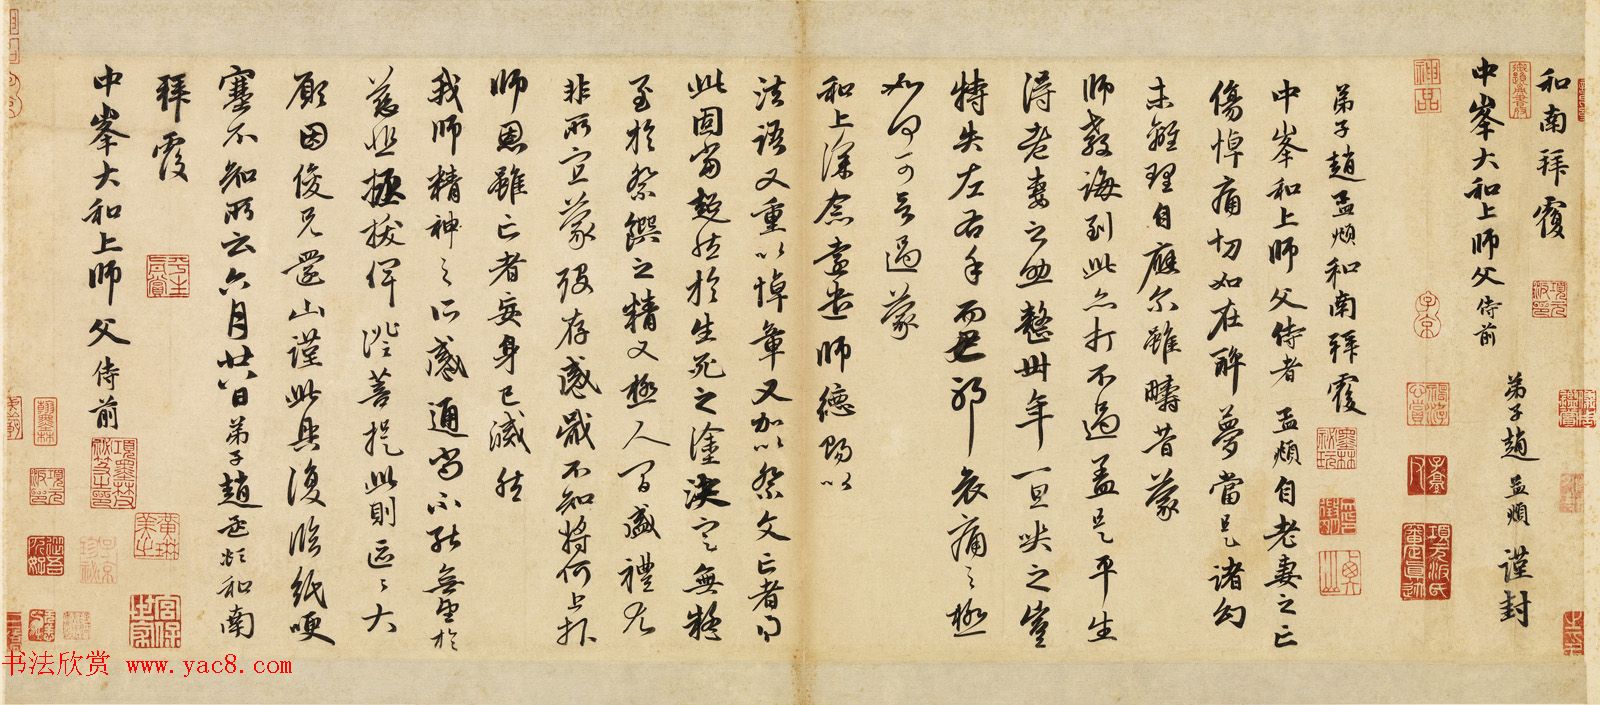 和南拜覆
中峯大和上師父侍前
弟子趙孟頫謹封
弟子趙孟頫和南拜覆
中峯和上師父侍者孟頫自老妻之亡
傷悼痛切如在醉夢當是諸幻
未離理自應尔雖畴昔蒙
師教誨到此亦打不過蓋是平生
得老妻之助整卅年一旦哭之豈
特失左右手而已耶哀痛之極
如何可言過蒙
和上深念遠遣師德賜以
法語又重以悼章又加以祭文亡者得
此固當超然於生死之塗決定無疑
至於祭饌之精又極人間盛禮尤
非所宜蒙殁存感戴不知將何上報
師恩雖亡者妄身已滅然
我師精神之所感通尚不能無望於
慈悲拯拔俾證菩提此則區々大
願因俊兄還山謹此具復臨紙哽
塞不知所云六月廿八日弟子趙孟頫和南
拜覆
中峯大和上師父侍前
神品
子京
书法欣赏 www.yac8.com